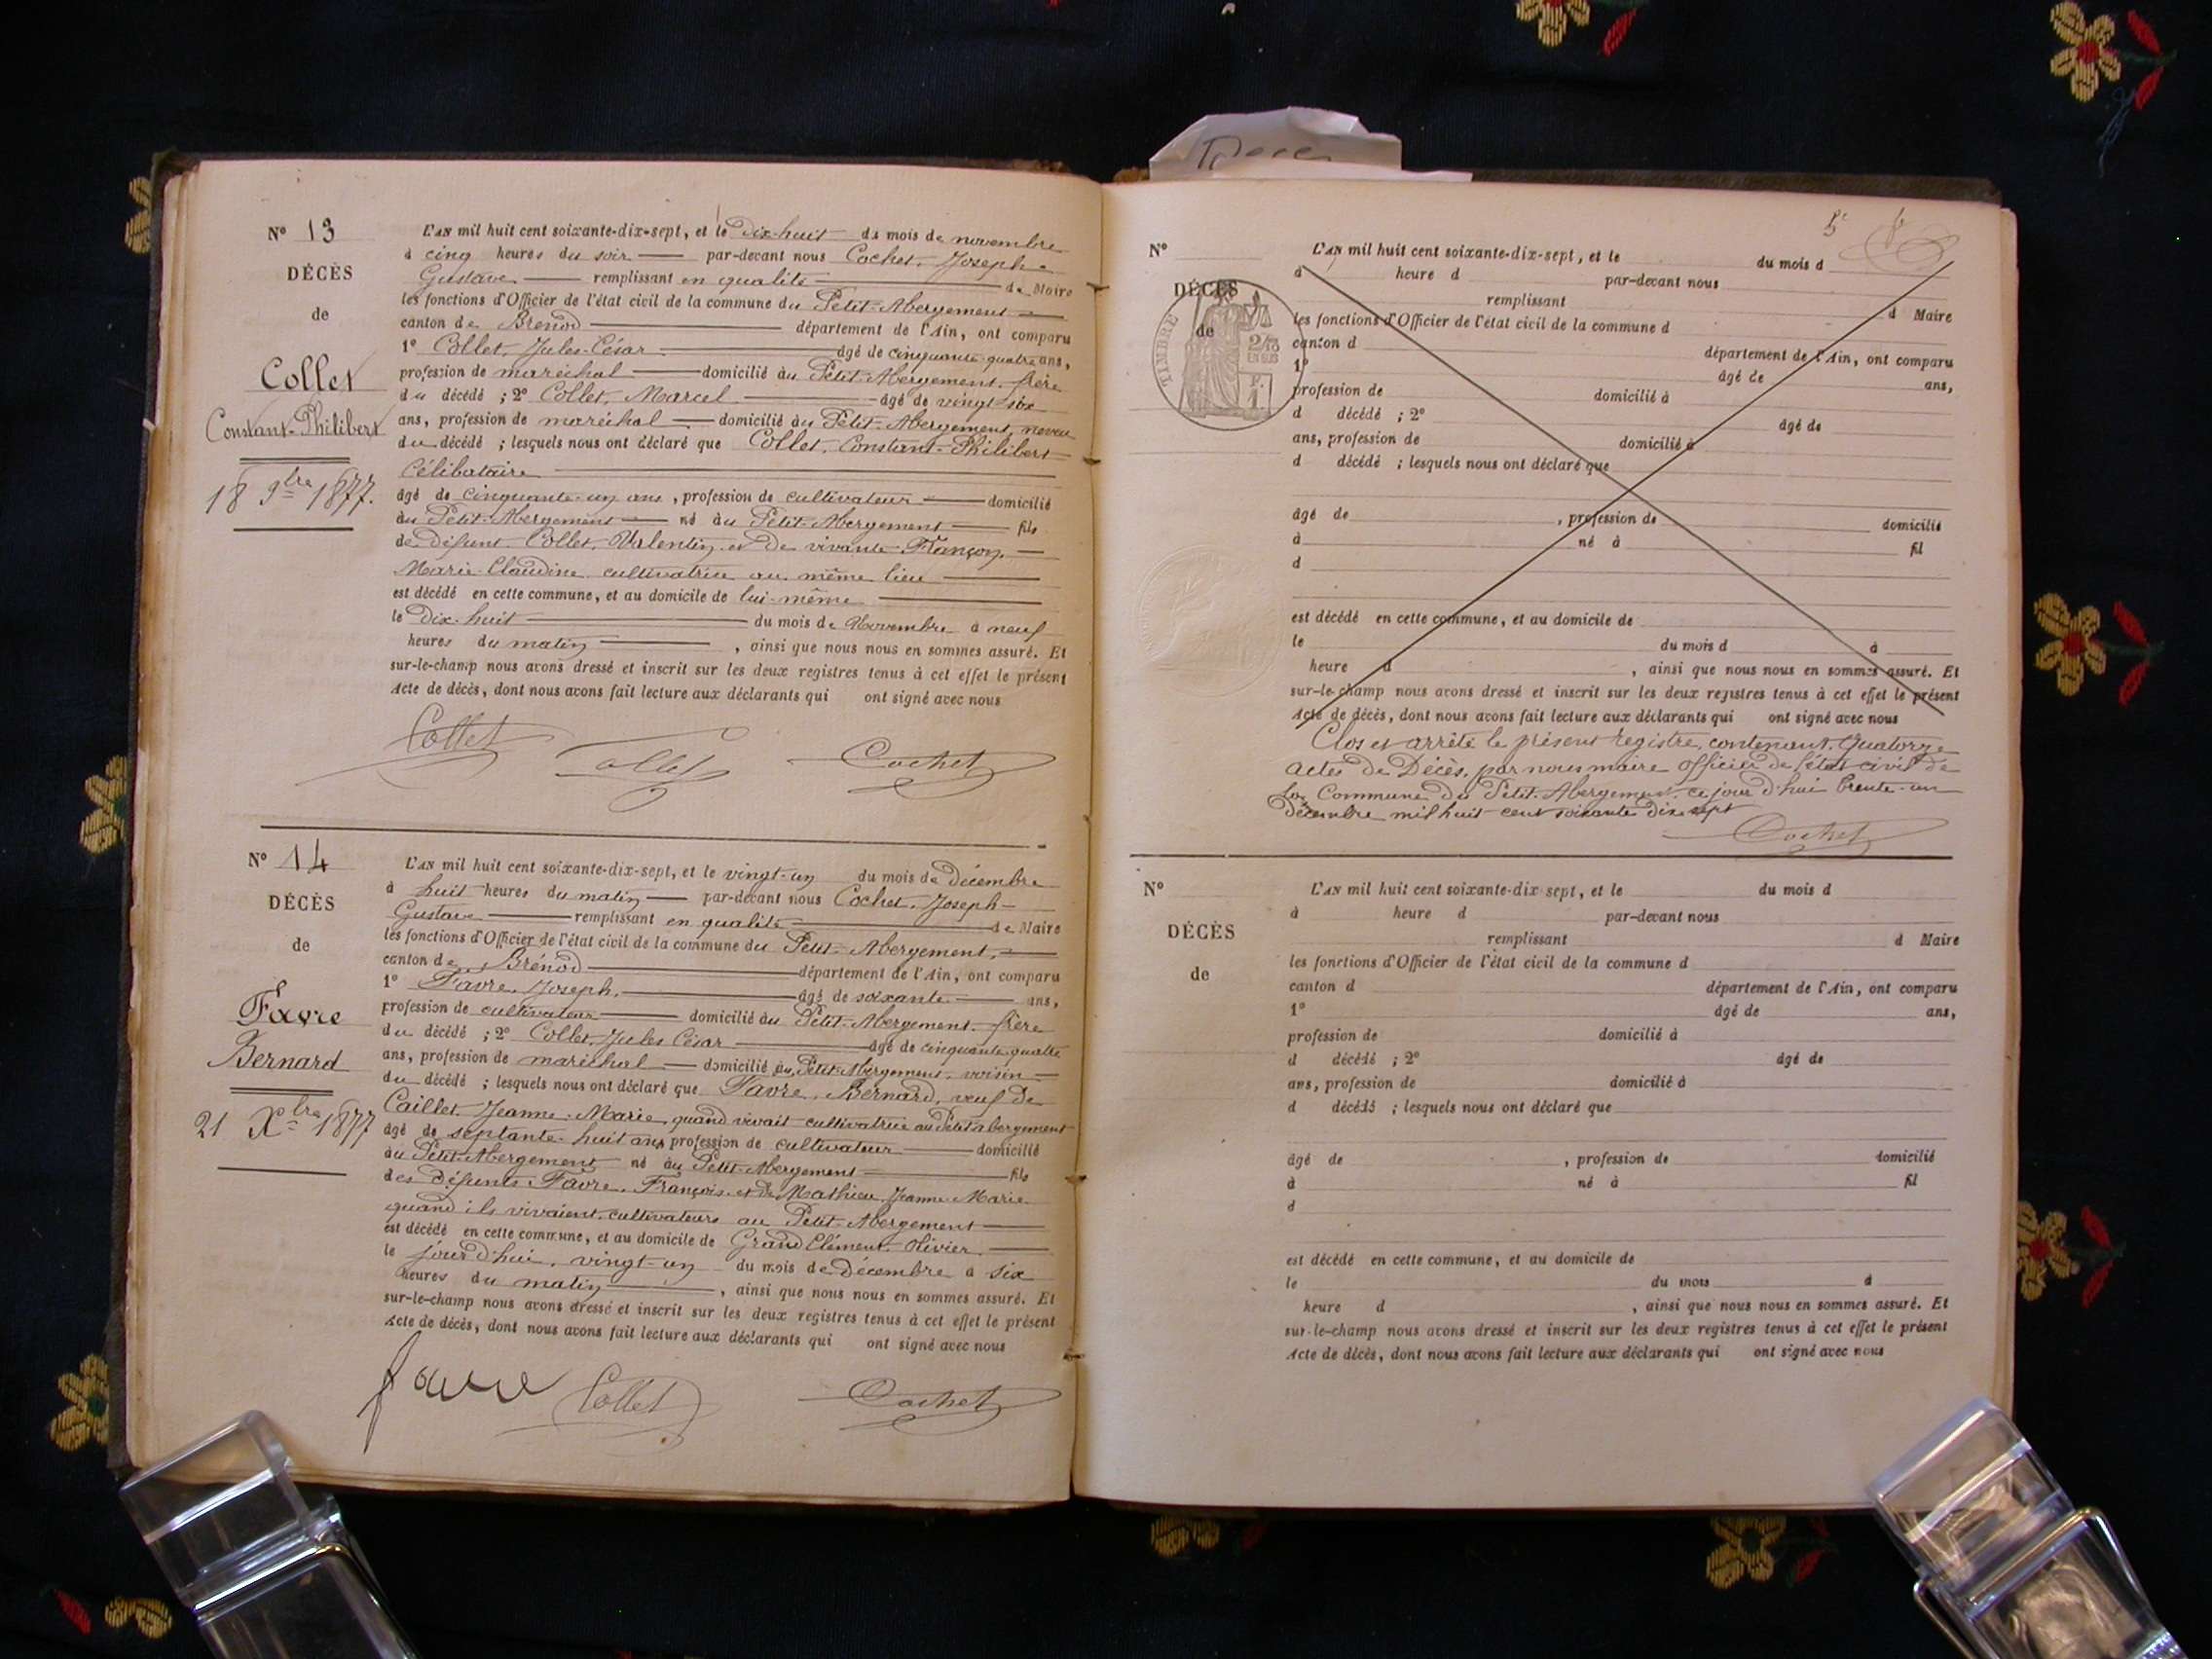 Nº 13
DÉCÈS
de
Collet
Constant-Philibert
18 9bre 1877.
L'AN mil huit cent soixante-dix-sept, et le Dix-huit du mois de novembre
à cinq heures du soir par-devant nous Cochet, Joseph-
Gustave remplissant en qualité de Maire
les fonctions d'Officier de l'état civil de la commune du Petit-Abergement
canton de Brénod département de l'Ain, ont comparu
1º Collet, Jules-César âgé de cinquante-quatre ans,
profession de maréchal domicilié au Petit-Abergement, frère
du décédé ; 2º Collet, Marcel âgé de vingt-six
ans, profession de maréchal domicilié au Petit-Abergement, neveu
du décédé ; lesquels nous ont déclaré que Collet, Constant-Philibert
Célibataire
âgé de cinquante-un ans, profession de cultivateur domicilié
au Petit-Abergement né au Petit-Abergement fils
de défunt Collet, Valentin et de vivante Françon,
Marie-Claudine cultivatrice au même lieu
est décédé en cette commune, et au domicile de lui-même
le Dix-huit du mois de Novembre à neuf
heures du matin , ainsi que nous nous en sommes assuré. Et
sur-le-champ nous avons dressé et inscrit sur les deux registres tenus à cet effet le présent
Acte de décès, dont nous avons fait lecture aux déclarants qui ont signé avec nous
Collet Collet Cochet
Nº 14
DÉCÈS
de
Favre
Bernard
21 Xbre 1877
L'AN mil huit cent soixante-dix-sept, et le vingt-un du mois de Décembre
à huit heures du matin par-devant nous Cochet, Joseph-
Gustave remplissant en qualité de Maire
les fonctions d'Officier de l'état civil de la commune du Petit-Abergement,
canton de Brénod département de l'Ain, ont comparu
1º Favre, Joseph, âgé de soixante ans,
profession de cultivateur domicilié au Petit-Abergement, frère
du décédé ; 2º Collet, Jules César âgé de cinquante-quatre
ans, profession de maréchal domicilié au Petit-Abergement, voisin
du décédé ; lesquels nous ont déclaré que Favre, Bernard, veuf de
Caillet, Jeanne-Marie, quand vivait cultivatrice au Petit abergement
âgé de septante-huit ans, profession de cultivateur domicilié
au Petit-Abergement né au Petit-Abergement fils
des défunts Favre, François et de Mathieu, Jeanne-Marie
quand ils vivaient, cultivateurs au Petit-Abergement
est décédé en cette commune, et au domicile de Grand Clément, Olivier
le jour d'hui, vingt-un du mois de décembre à six
heures du matin , ainsi que nous nous en sommes assuré. Et
sur-le-champ nous avons dressé et inscrit sur les deux registres tenus à cet effet le présent
Acte de décès, dont nous avons fait lecture aux déclarants qui ont signé avec nous
favre Collet Cochet
Nº
DÉCÈS
de
TIMBRE
L'AN mil huit cent soixante-dix-sept, et le du mois d
à heure d par-devant nous
remplissant d Maire
les fonctions d'Officier de l'état civil de la commune d
canton d département de l'Ain, ont comparu
1º âgé de ans,
profession de domicilié à
d décédé ; 2º âgé de
ans, profession de domicilié à
d décédé ; lesquels nous ont déclaré que
âgé de , profession de domicilié
à né à fil
d
est décédé en cette commune, et au domicile de
le du mois d à
heure d , ainsi que nous nous en sommes assuré. Et
sur-le-champ nous avons dressé et inscrit sur les deux registres tenus à cet effet le présent
Acte de décès, dont nous avons fait lecture aux déclarants qui ont signé avec nous
Clos et arrêté le présent registre, contenant quatorze
actes de Décès, par nous maire officier de l'état civil de
la Commune du Petit-Abergement, ce jour d'hui trente-un
Décembre mil huit cent soixante dix sept
Cochet
Nº
DÉCÈS
de
L'AN mil huit cent soixante-dix sept, et le du mois d
à heure d par-devant nous
remplissant d Maire
les fonctions d'Officier de l'état civil de la commune d
canton d département de l'Ain, ont comparu
1º âgé de ans,
profession de domicilié à
d décédé ; 2º âgé de
ans, profession de domicilié à
d décédé ; lesquels nous ont déclaré que
âgé de , profession de domicilié
à né à fil
d
est décédé en cette commune, et au domicile de
le du mois à
heure d , ainsi que nous nous en sommes assuré. Et
sur-le-champ nous avons dressé et inscrit sur les deux registres tenus à cet effet le présent
Acte de décès, dont nous avons fait lecture aux déclarants qui ont signé avec nous